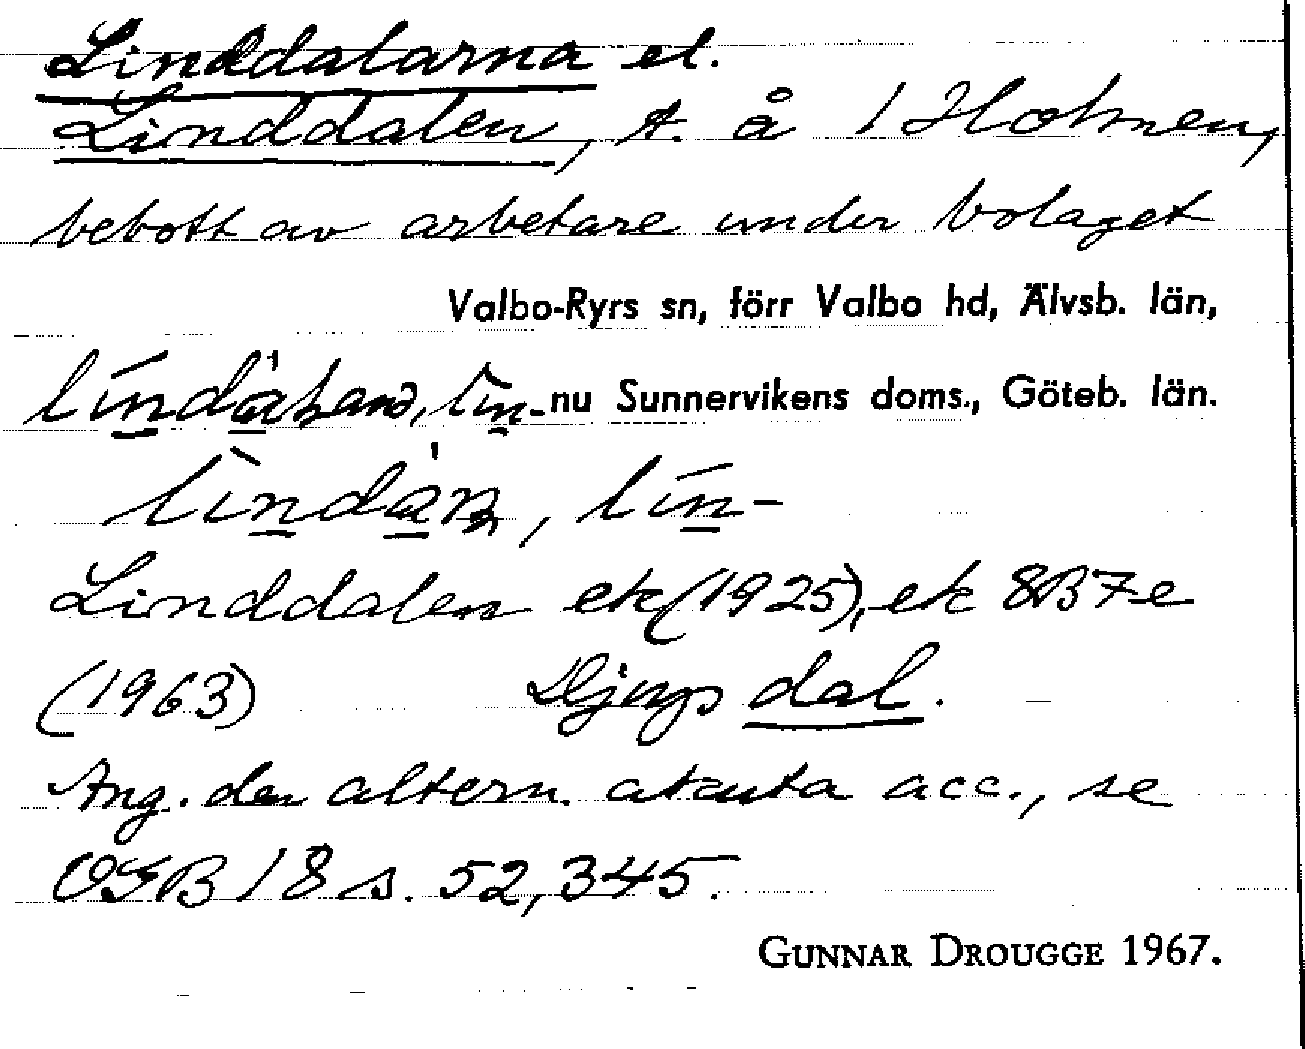 Linddalarna el.
Linddalen, t. å 1 Holmen,
bebott av arbetare under bolaget
Valbo-Ryrs sn, förr Valbo hd, Älvsb. län,
nu Sunnervikens doms., Göteb. län.
Linddalen ek (1925), ek 8B7e
(1963) Djups dal.
Ang. den altern. akuta acc., se
OGB 18 s. 52, 345.
GUNNAR DROUGGE 1967.